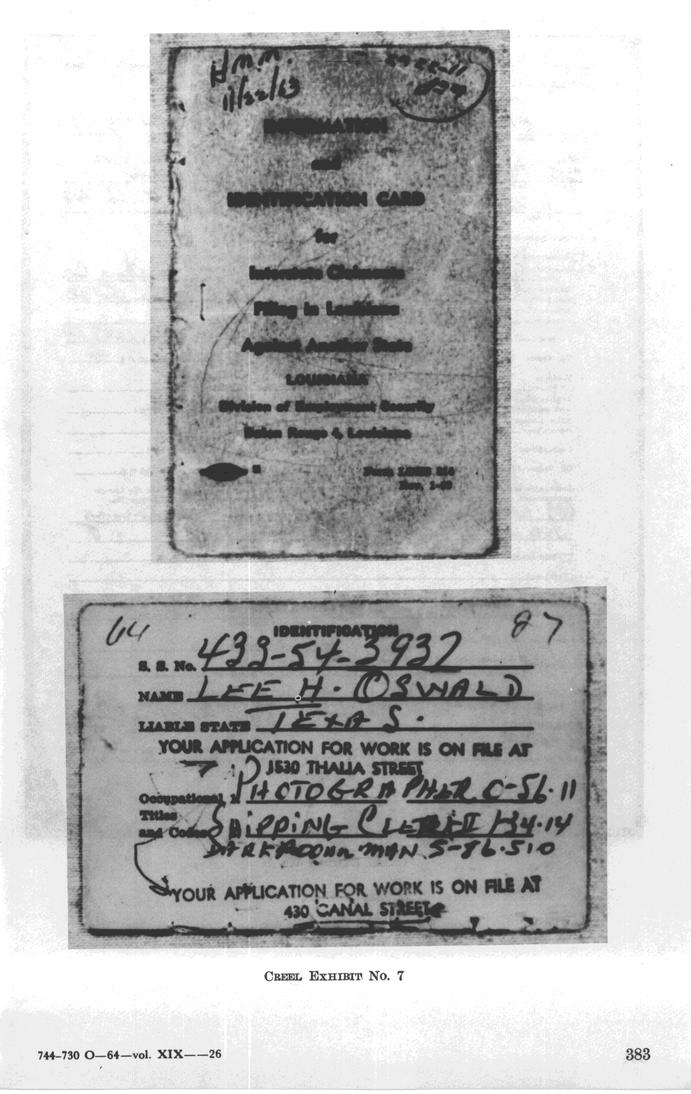 H.M.M.
11/22/63
INFORMATION
and
IDENTIFICATION CARD
for
Interstate Claimants
Filing in Louisiana
Against Another State
LOUISIANA
Division of Employment Security
Baton Rouge 4, Louisiana
Form
Rev.
64
87
IDENTIFICATION
S. S. No. 433-54-3937
NAME LEE H. OSWALD
LIABLE STATE TEXAS.
YOUR APPLICATION FOR WORK IS ON FILE AT
1530 THALIA STREET
Occupational PHOTOGRAPHER 0-56.11
Titles
and Codes SHIPPING CLERK II
DARKROOM MAN 5-86.510
YOUR APPLICATION FOR WORK IS ON FILE AT
430 CANAL STREET
CREEL EXHIBIT No. 7
744-730 O—64—vol. XIX——26
383